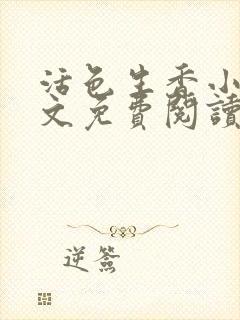 活色生香小
文免費閱讀
逆簽